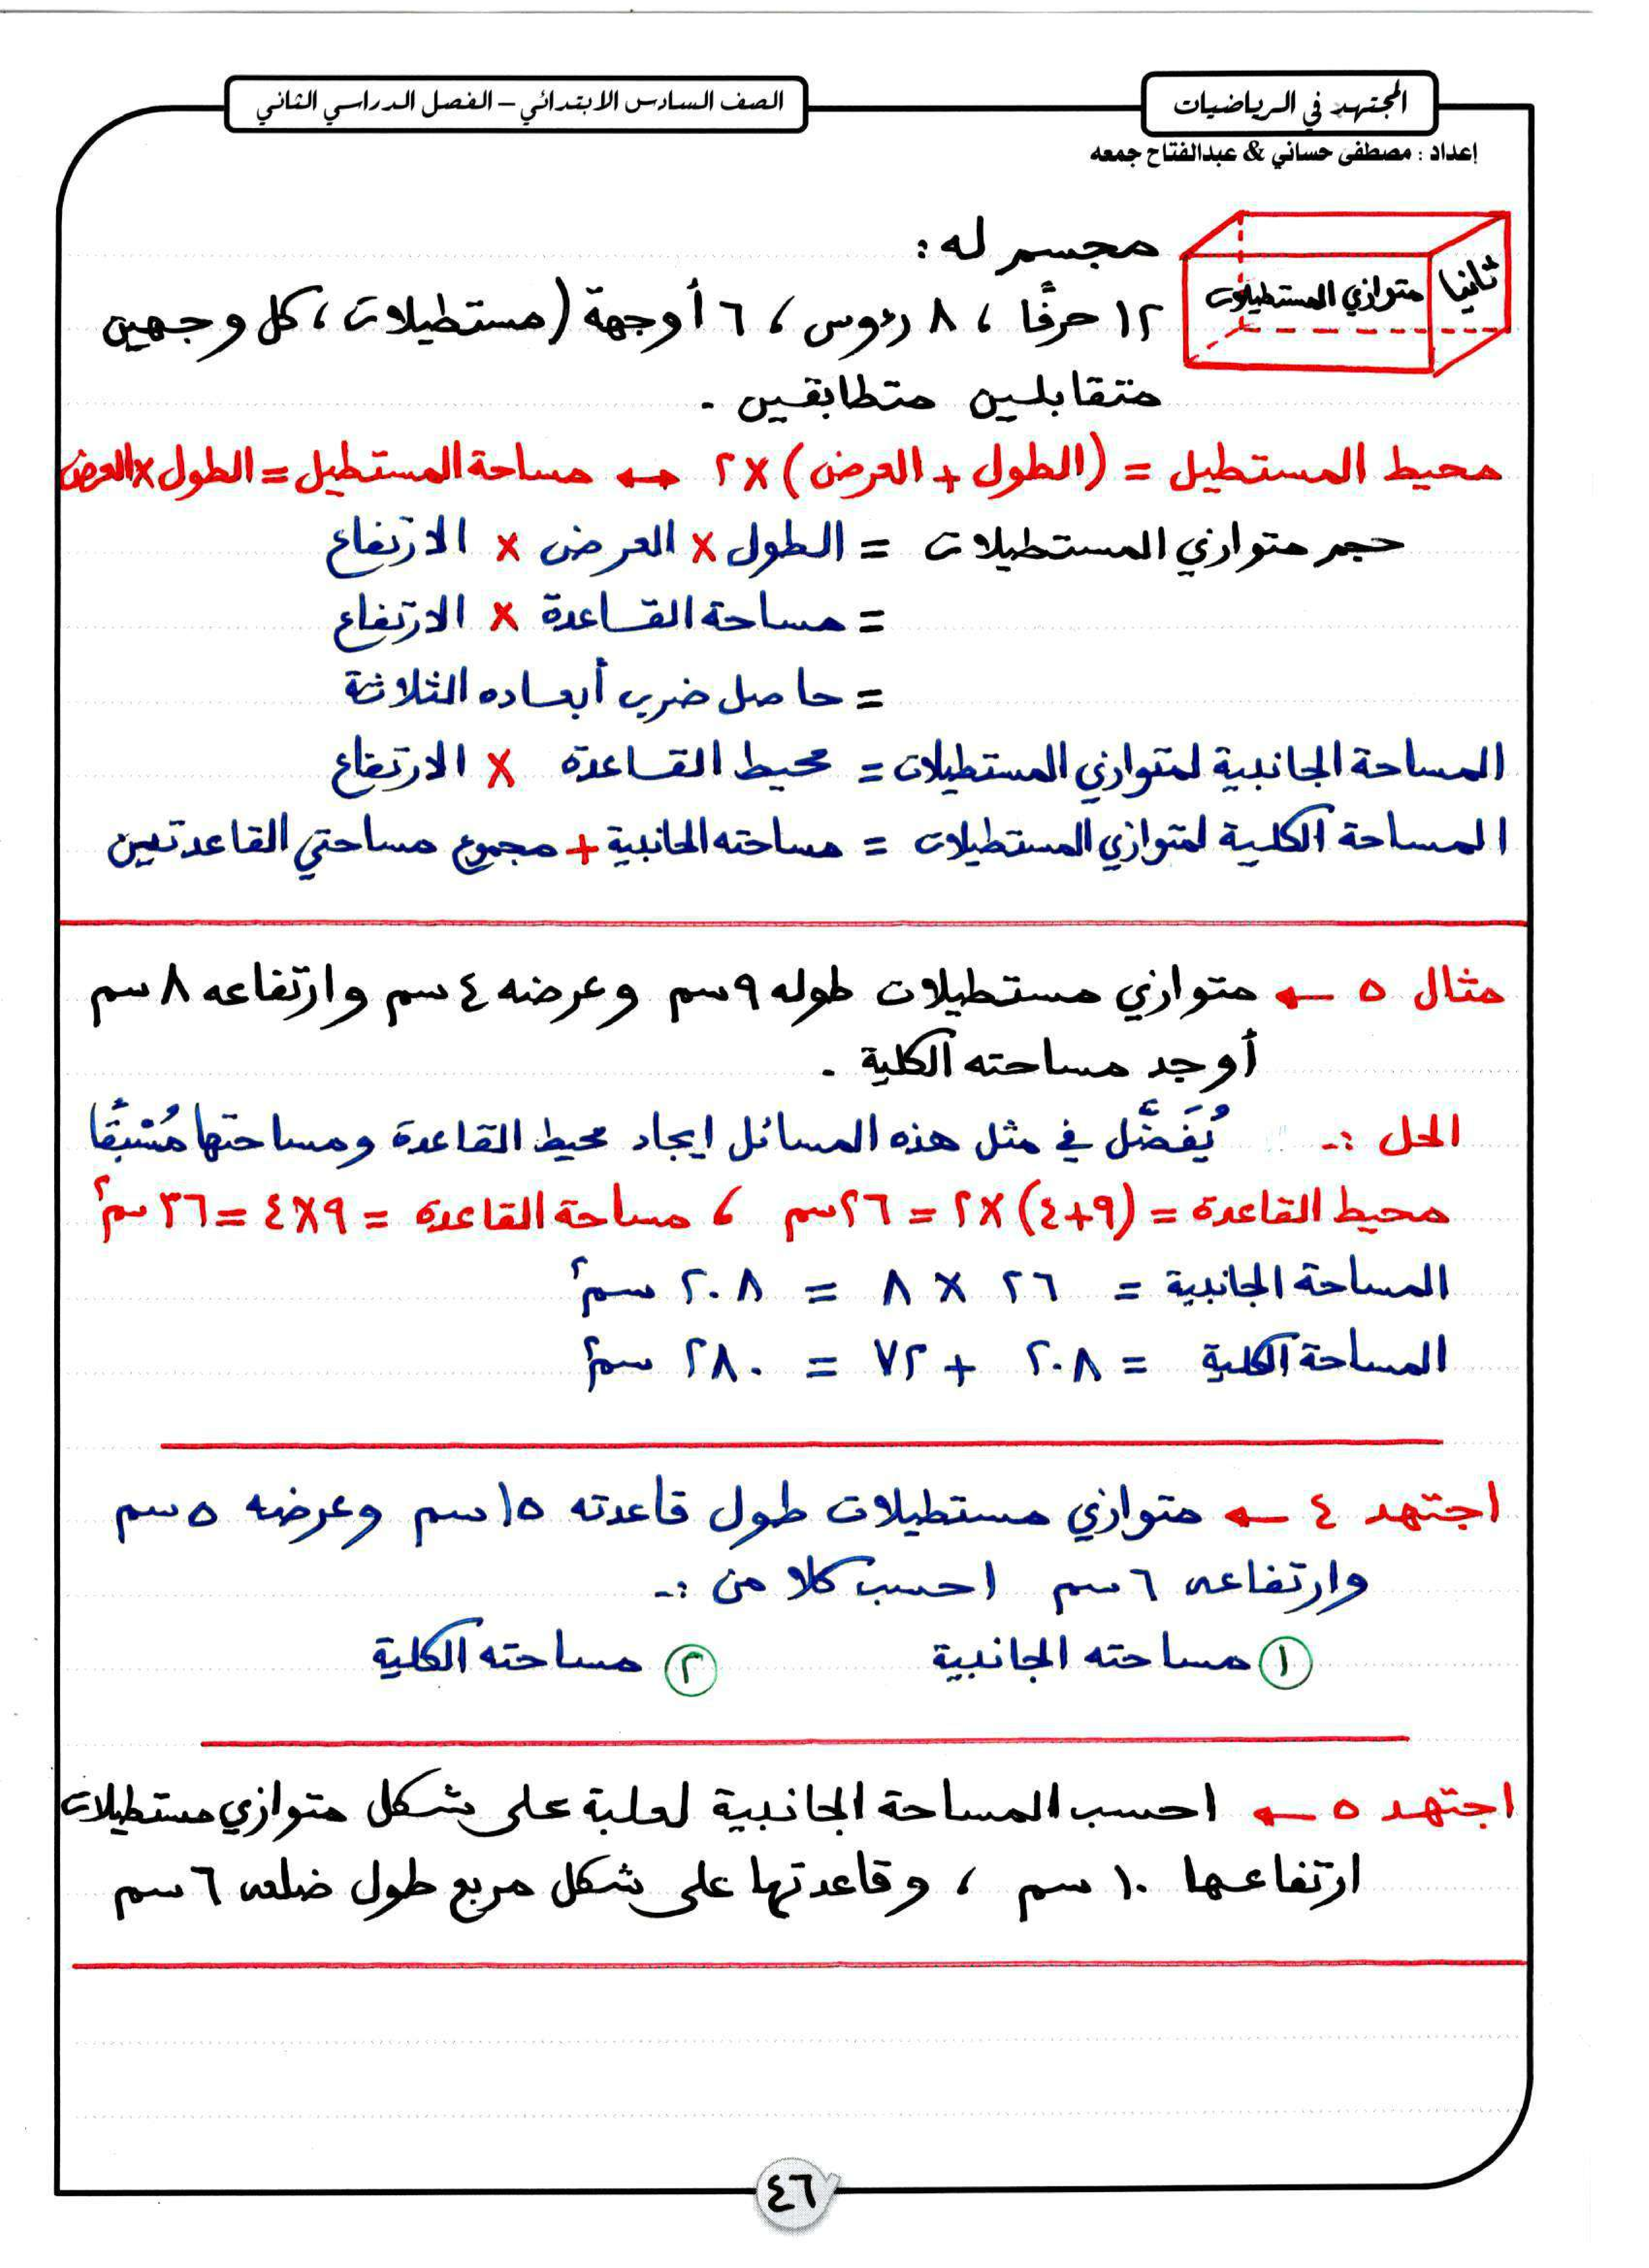 المجتهد في الرياضيات
الصف السادس الابتدائي – الفصل الدراسي الثاني
إعداد : مصطفى حساني & عبدالفتاح جمعه
ثانيا متوازي المستطيلات
مجسم له :
١٢ حرفًا ، ٨ رءوس ، ٦ أوجهة (مستطيلات ، كل وجهين
متقابلين متطابقين .
محيط المستطيل = (الطول + العرض) × ٢ ↔ مساحة المستطيل = الطول × العرض
حجم متوازي المستطيلات = الطول × العرض × الارتفاع
= مساحة القاعدة × الارتفاع
= حاصل ضرب أبعاده الثلاثة
المساحة الجانبية لمتوازي المستطيلات = محيط القاعدة × الارتفاع
المساحة الكلية لمتوازي المستطيلات = مساحته الجانبية + مجموع مساحتي القاعدتين
مثال ٥ ← متوازي مستطيلات طوله ٩ سم وعرضه ٤ سم وارتفاعه ٨ سم
أوجد مساحته الكلية .
الحل :- يُفَضَّل في مثل هذه المسائل ايجاد محيط القاعدة ومساحتها مُسْبَقًا
محيط القاعدة = (٩+٤) × ٢ = ٢٦ سم ، مساحة القاعدة = ٩×٤ = ٣٦ سم٢
المساحة الجانبية = ٢٦ × ٨ = ٢٠٨ سم٢
المساحة الكلية = ٢٠٨ + ٧٢ = ٢٨٠ سم٢
اجتهد ٤ ← متوازي مستطيلات طول قاعدته ١٥ سم وعرضه ٥ سم
وارتفاعه ٦ سم احسب كلا من :-
١ مساحته الجانبية ٢ مساحته الكلية
اجتهد ٥ ← احسب المساحة الجانبية لعلبة على شكل متوازي مستطيلات
ارتفاعها ١٠ سم ، وقاعدتها على شكل مربع طول ضلعه ٦ سم
٤٦